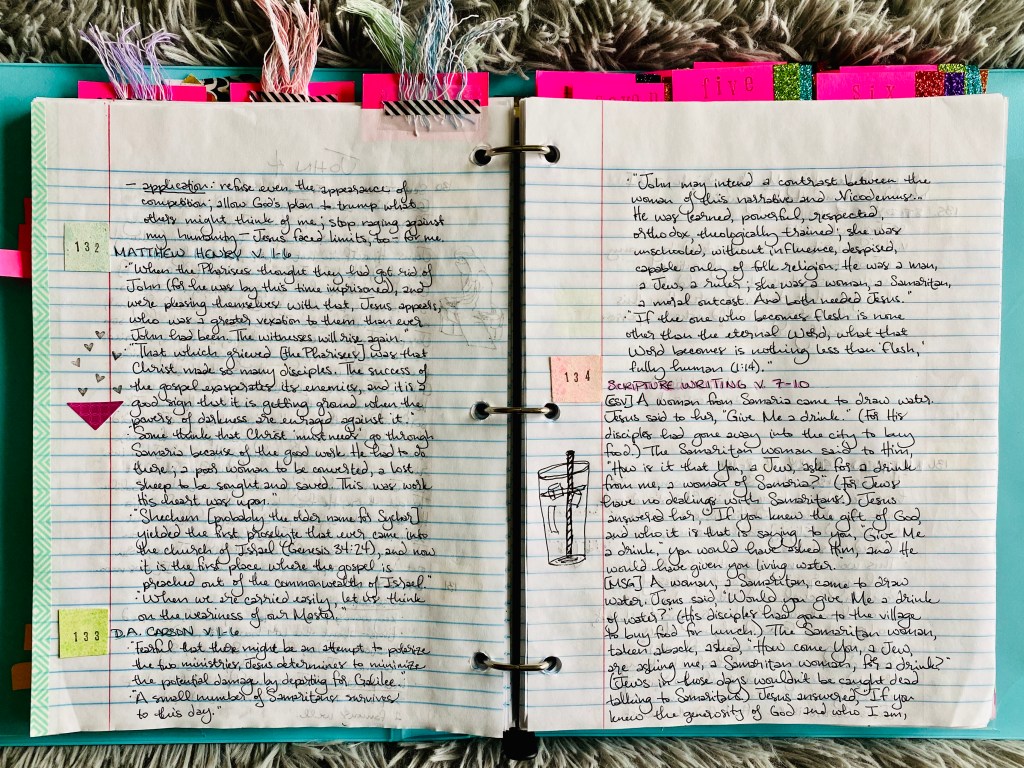 five
six
- application: refuse even the appearance of
competition; allow God's plan to trump what
others might think of me; stop raging against
my humanity - Jesus faced limits, too - for me.
132
MATTHEW HENRY V. 1-6
·"When the Pharisees thought they had got rid of
John (for he was by this time imprisoned), and
were pleasing themselves with that, Jesus appears,
who was a greater vexation to them than ever
John had been. The witnesses will rise again.
·"That which grieved [the Pharisees] was that
Christ made so many disciples. The success of
the gospel exasperates its enemies, and it is a
good sign that it is getting ground when the
powers of darkness are enraged against it."
·"Some think that Christ 'must needs' go through
Samaria because of the good work He had to do
there; a poor woman to be converted, a lost
sheep to be sought and saved. This was work
His heart was upon."
·"Shechem [probably the older name for Sychar]
yielded the first proselyte that ever came into
the church of Israel (Genesis 34:24), and now
it is the first place where the gospel is
preached out of the commonwealth of Israel."
·"When we are carried easily, let us think
on the weariness of our Master."
133
D.A. CARSON V. 1-6
·"Fearful that there might be an attempt to polarize
the two ministries, Jesus determines to minimize
the potential damage by departing for Galilee."
·"A small number of Samaritans survives
to this day."
·"John may intend a contrast between the
woman of this narrative and Nicodemus...
He was learned, powerful, respected,
orthodox, theologically trained; she was
unschooled, without influence, despised,
capable only of folk religion. He was a man,
a Jew, a ruler; she was a woman, a Samaritan,
a moral outcast. And both needed Jesus."
·"If the one who becomes flesh is none
other than the eternal Word, what that
Word becomes is nothing less than 'flesh,'
fully human (1:14)."
134
SCRIPTURE WRITING V. 7-10
[ESV] A woman from Samaria came to draw water.
Jesus said to her, "Give Me a drink." (For His
disciples had gone away into the city to buy
food.) The Samaritan woman said to Him,
"How is it that You, a Jew, ask for a drink
from me, a woman of Samaria?" (For Jews
have no dealings with Samaritans.) Jesus
answered her, "If you knew the gift of God,
and who it is that is saying to you, 'Give Me
a drink,' you would have asked Him, and He
would have given you living water.
[MSG] A woman, a Samaritan, came to draw
water. Jesus said, "Would you give Me a drink
of water?" (His disciples had gone to the village
to buy food for lunch.) The Samaritan woman,
taken aback, asked, "How come You, a Jew,
are asking me, a Samaritan woman, for a drink?"
(Jews in those days wouldn't be caught dead
talking to Samaritans.) Jesus answered, "If you
knew the generosity of God and who I am,